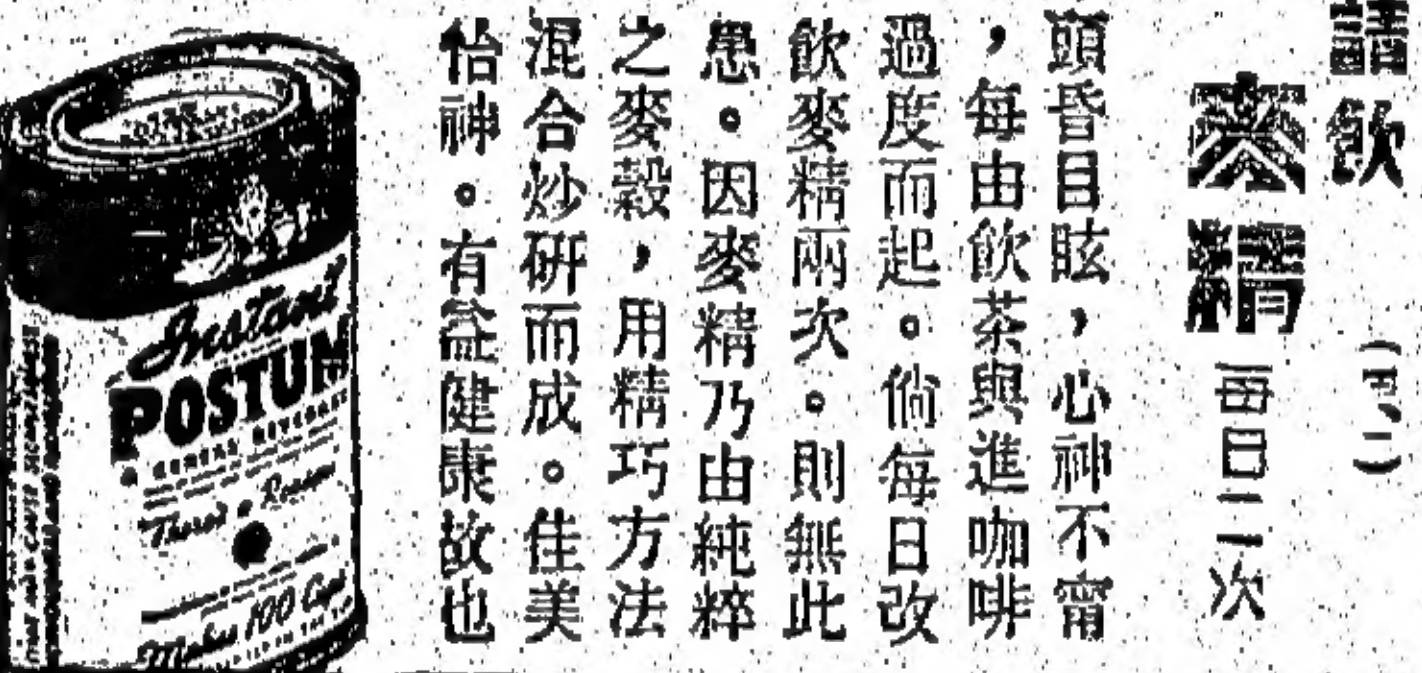 請飲
麥精
每日二次
頭昏目眩，心神不甯
，每由飲茶與進咖啡
過度而起。倘每日改
飲麥精兩次。則無此
患。因麥精乃由純粹
之麥穀，用精巧方法
混合炒研而成。佳美
怡神。有益健康故也
Instant
POSTUM
CEREAL BEVERAGE
Makes 100 Cups